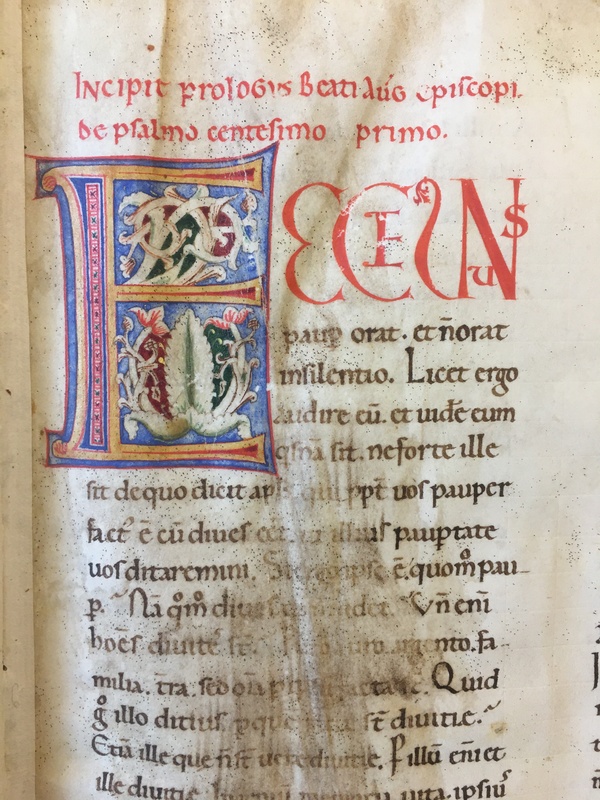 Incipit prologus Beati Aug episcopi.
de psalmo centesimo primo.
ECCE UNUS
paup orat. et n̄ orat
insilentio. Licet ergo
audire eū. et uidē eum
qsnā sit. neforte ille
sit dequo dicit apls. qui ppt uos pauper
fact' ē cū diues eēt. ut illius paupertate
uos ditaremini. Si ergo ipse ē. quom̄ pau
p. Nā qm̄ diues Vn̄ enī
hoēs diuite st̄. argento. fa
milia. t̄ra. sed Quid
g̊ illo ditius. p que st̄ diuitie.
Etiā ille que n̄ st̄ uere diuitie. P illū eni et
ille diuitie. Ingenii memoria uita. ipsiu'